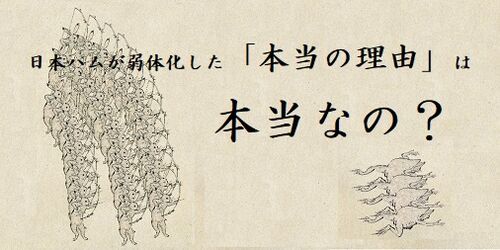 日本ハムが弱体化した「本当の理由」は
本当なの？